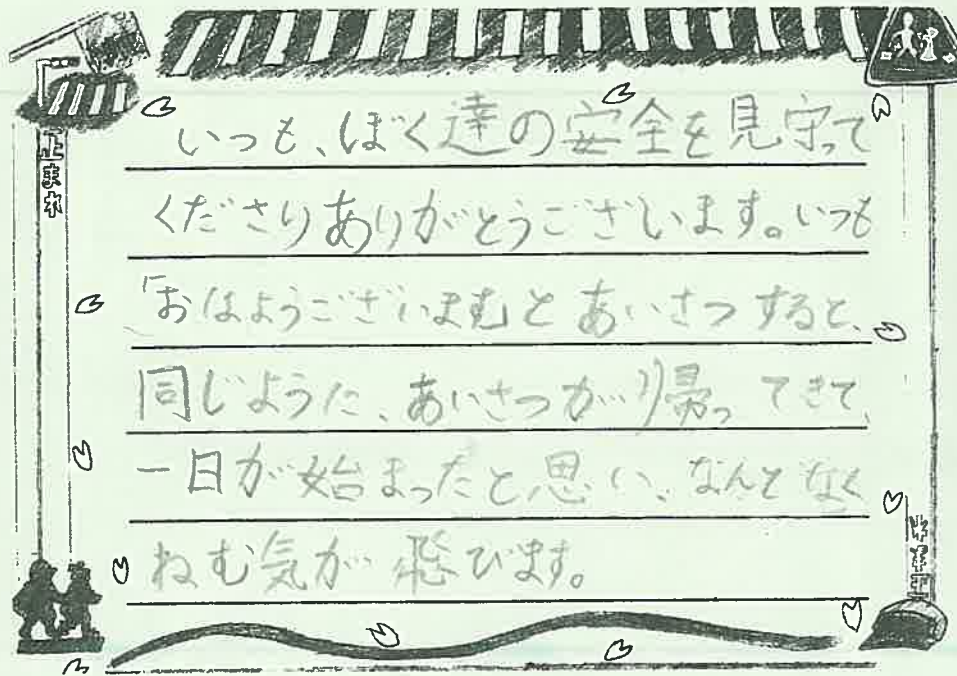 いつも、ぼく達の安全を見守って
くださりありがとうございます。いつも
「おはようございます」とあいさつすると、
同じように、あいさつが帰ってきて、
一日が始まったと思い、なんとなく
ねむ気が飛びます。
止まれ